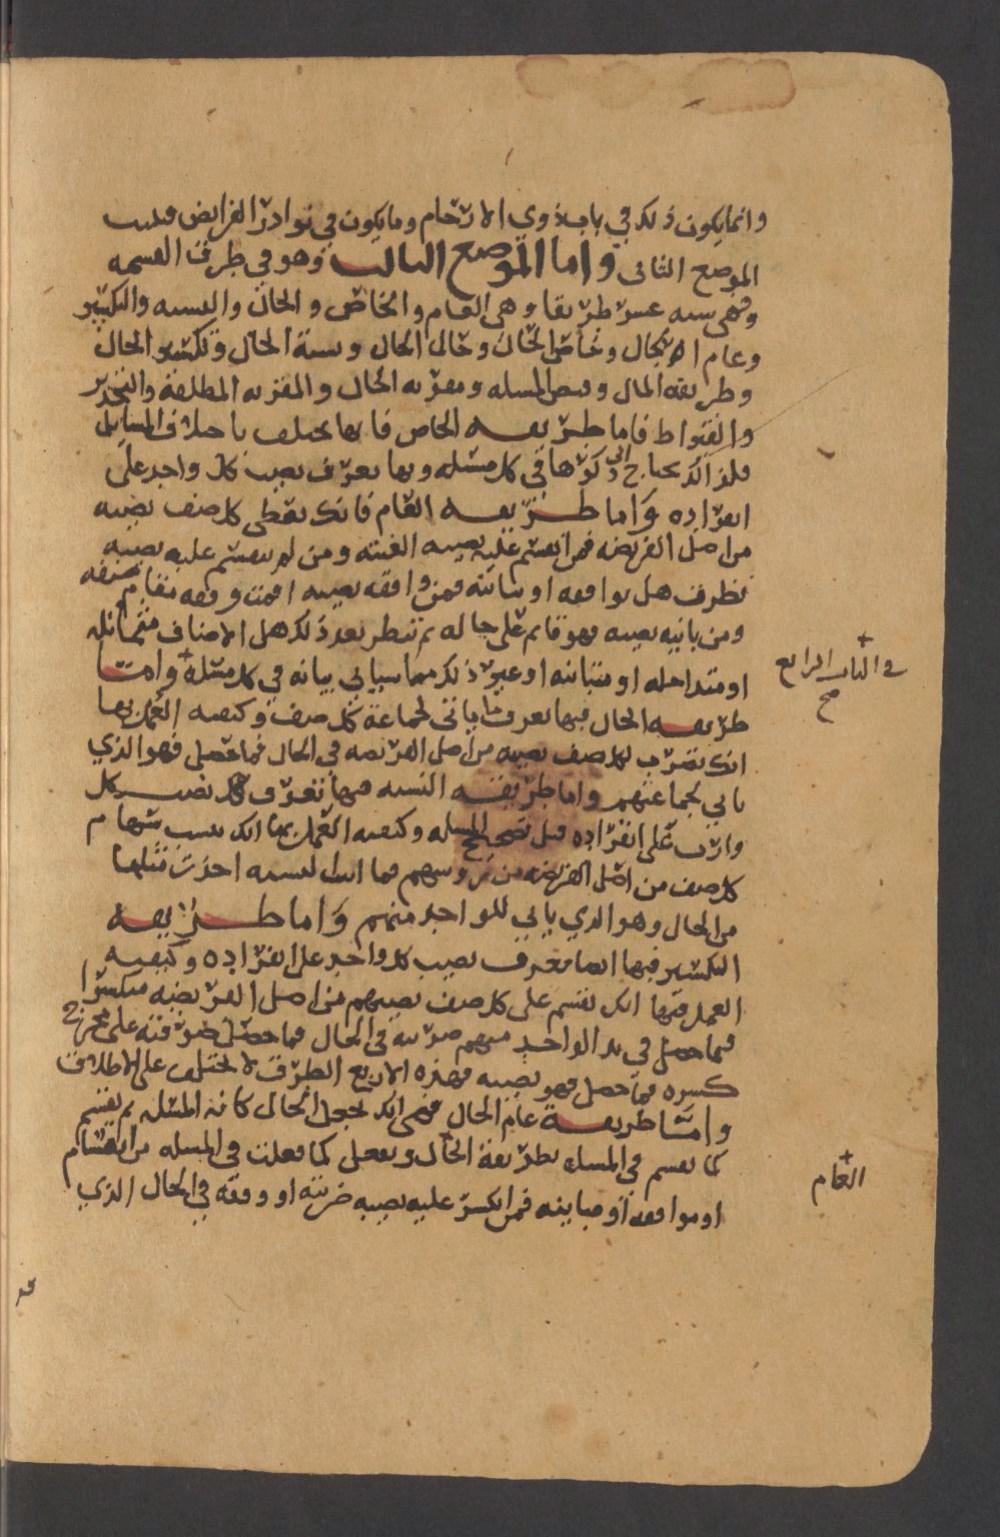 وانما يكون ذلك في باب ذوي الارحام وما يكون في نوادر الفرايض فليس
الموضع الثاني واما الموضع الثالث وهو في طرق القسمه
وهي سته عشر طريقا وهي العام والخاص والحال والنسبه والتكسير
وعام الحال وخاص الحال وحال الحال ونسبة الحال وتكسير الحال
وطريقه المال وبعض المسله ومعزبه الحال والمعزبه المطلقة والتجذير
والقيراط فاما طريقه الخاص فانها تختلف باختلاف المسايل
فلذلك يحتاج الى ذكرها في كل مسئله وبها يعرف نصيب كل واحد على
انفراده واما طريقه العام فانك تعطي كل صنف نصيبه
من اصل الفريضه فمن انقسم عليه نصيبه اغنته ومن لم ينقسم عليه نصيبه
نظرت هل يوافقه او يباينه فمن وافقه نصيبه اقمت وفقه مقام صنفه
ومن باينه نصيبه فهو قائم على حاله ثم تنظر بعد ذلك هل الاصناف متماثله
او متداخله او متباينه او غير ذلك مما سياتي بيانه في كل مسئلة واما
طريقه الحال فبها يعرف ما ياتي لجماعة كل صنف وكيفيه العمل بها
انك تضرب لكل صنف نصيبه من اصل الفريضه في الحال فما حصل فهو الذي
ياتي لجماعتهم واما طريقه النسبه فبها تعرف نصيب كل
وارث على انفراده قبل تصحيح المسله وكيفيه العمل بها انك تنسب سهام
كل صنف من اصل الفريضه من روسهم فما اتت النسبه اخذت مثلها
من الحال وهو الذي ياتي للواحد منهم واما طريقه
التكسير فبها ايضا تعرف نصيب كل واحد على انفراده وكيفيه
العمل فيها انك تقسم على كل صنف نصيبهم من اصل الفريضه منكسرا
فما حصل في يد الواحد منهم ضربته في الحال فما حصل صرفته على مخرج
كسره فما حصل فهو نصيبه فهذه الاربع الطرق لا تختلف على الاطلاق
واما طريقة عام الحال فهي انك تجعل الحال كانه المسئله ثم تقسم
كما تقسم في المسله بطريقة الحال وتعمل كما فعلت في المسله من انقسام
او موافقه او مباينه فمن انكسر عليه نصيبه ضربته او وفقه في الحال الذي
في الباب الرابع
صح
العام